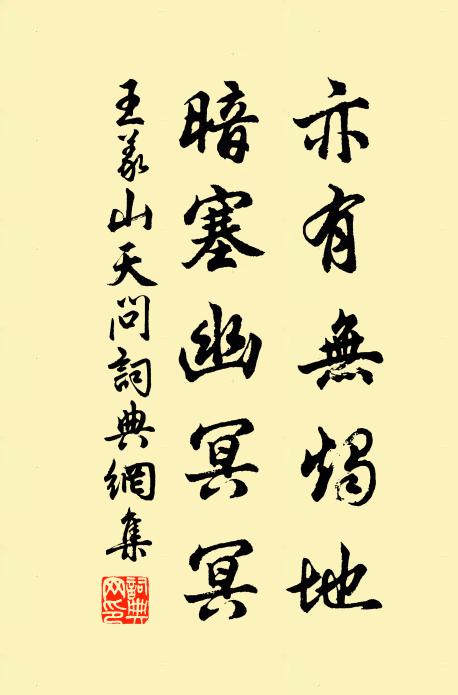 亦有無燭地
暗塞幽冥冥
王義山天問詞典網集
詞典網印